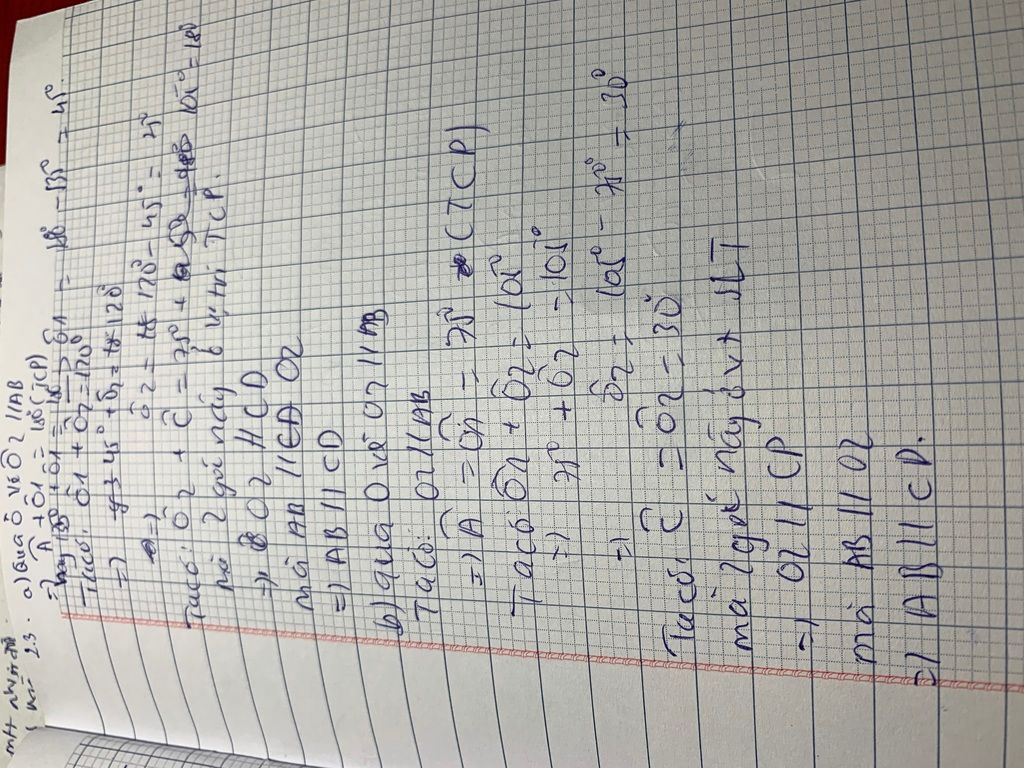 a) Qua ô vẽ Oz // AB
=> Â + Ô1 = 180° (TCP)
hay 135° + Ô1 = 180° => Ô1 = 180° - 135° = 45°.
Ta có: Ô1 + Ô2 = 120°
=> 45° + Ô2 = 120°
=> Ô2 = 120° - 45° = 75°
Ta có: Ô2 + Ĉ = 75° + 105° = 180
mà 2 góc này ở vị trí TCP.
=> Oz // CD
mà AB // Oz
=> AB // CD
b) qua O vẽ Oz // AB
Ta có: Oz // AB
=> Â = Ô1 = 75° (TCP)
Ta có Ô1 + Ô2 = 105°
=> 75° + Ô2 = 105°
=> Ô2 = 105° - 75° = 30°
Ta có: Ĉ = Ô2 = 30°
mà 2 góc này ở vt SLT
=> Oz // CD
mà AB // Oz
=> AB // CD.